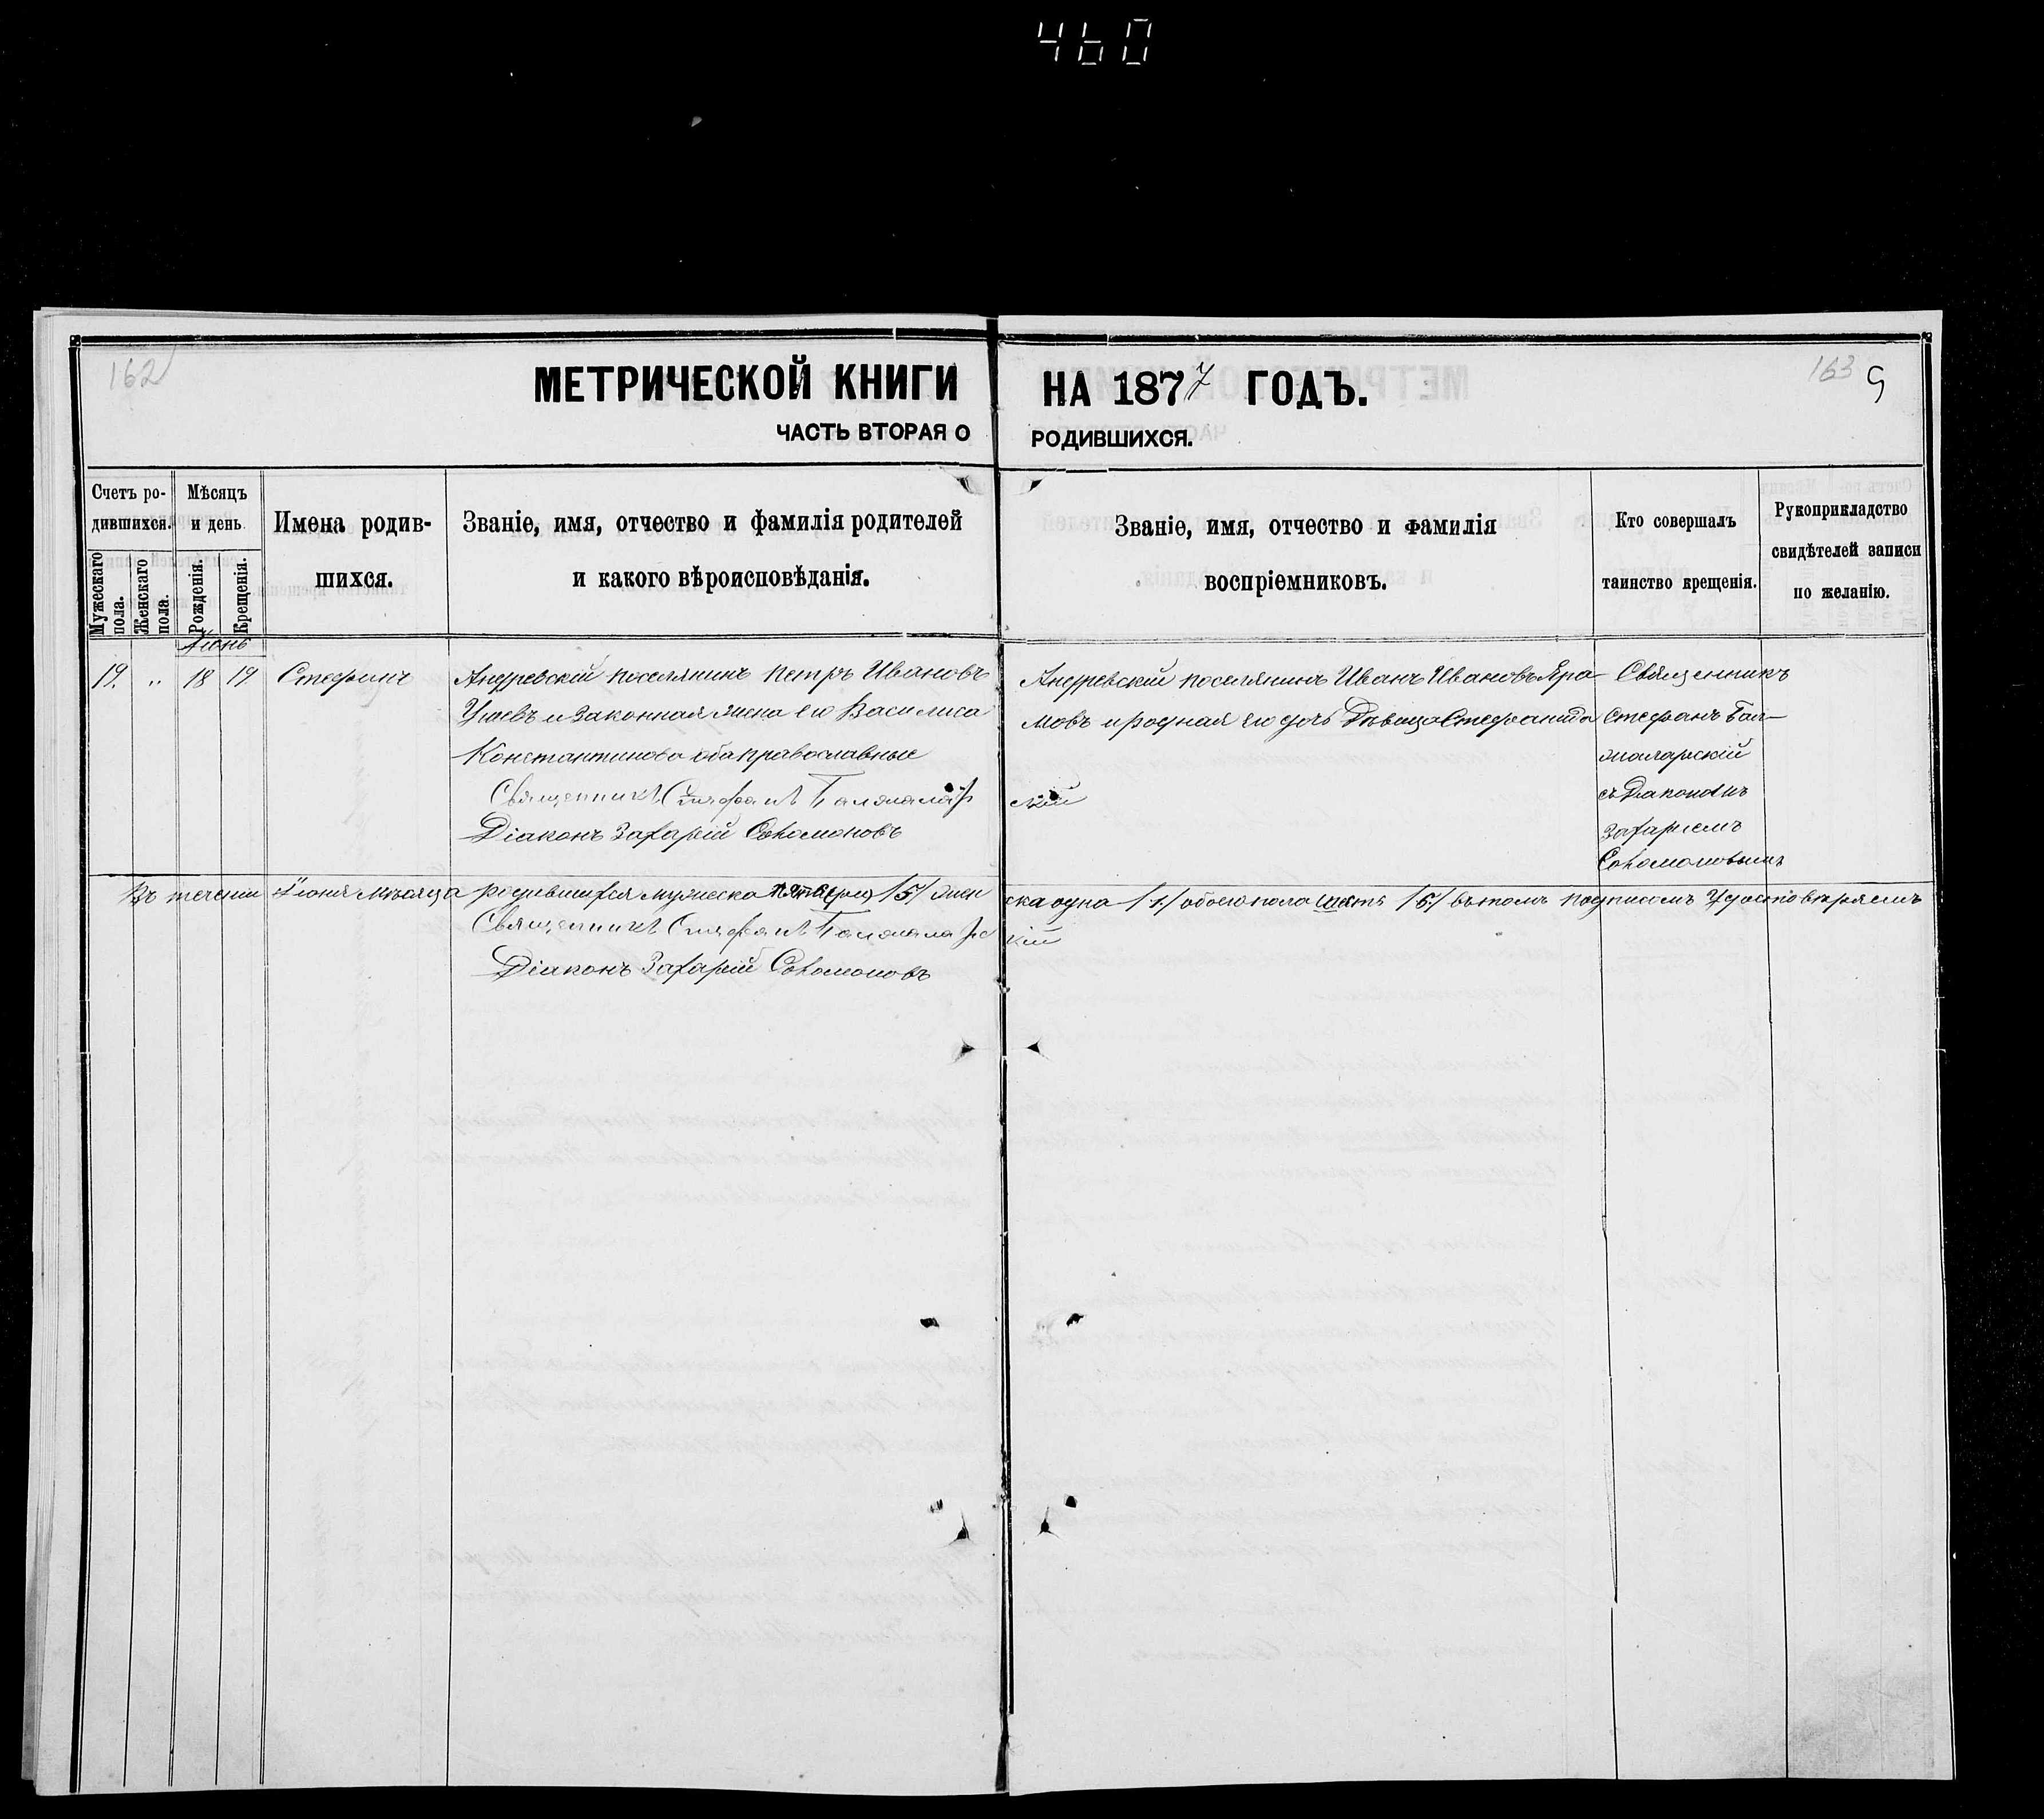 460
162
163 9
МЕТРИЧЕСКОЙ КНИГИ НА 1877 ГОДЪ.
ЧАСТЬ ВТОРАЯ О РОДИВШИХСЯ.
Счетъ ро-
дившихся.
Мужескаго пола.
Женскаго пола.
Мѣсяцъ
и день
Рожденія.
Крещенія.
Имена родив-
шихся.
Званіе, имя, отчество и фамилія родителей
и какого вѣроисповѣданія.
Званіе, имя, отчество и фамилія
воспріемниковъ.
Кто совершалъ
таинство крещенія.
Рукоприкладство
свидѣтелей записи
по желанію.
Іюнь
19. „ 18 19 Стефанъ
Андревскій поселянинъ Петръ Ивановъ
и законная жена его Василиса
Константинова оба православные
Священникъ Стефанъ Балжалар
скій
Діаконъ Захарій Соломоновъ
Андревскій поселянинъ Иванъ Ивановъ Яра-
мовъ и родная его дочь Дѣвица Стефанида
Священникъ
Стефанъ Бал-
жаларскій
съ Діакономъ
Захаріемъ
Соломоновымъ
Въ теченіи Іюня мѣсяца родившихся мужеска пятеро /5/ жен
ска одна /1/ обоего пола шесть /6/ въ томъ подписомъ удостовѣряемъ
Священникъ Стефанъ Балжаларс
кій
Діаконъ Захарій Соломоновъ